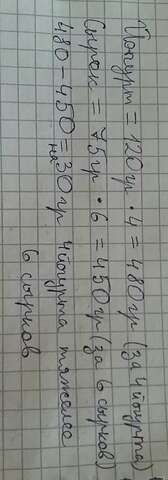 Йогурт = 120гр · 4 = 480гр (за 4 йогурта)
Сырок = 75гр · 6 = 450гр (за 6 сырков)
480 - 450 = на 30гр 4 йогурта тяжелее
6 сырков